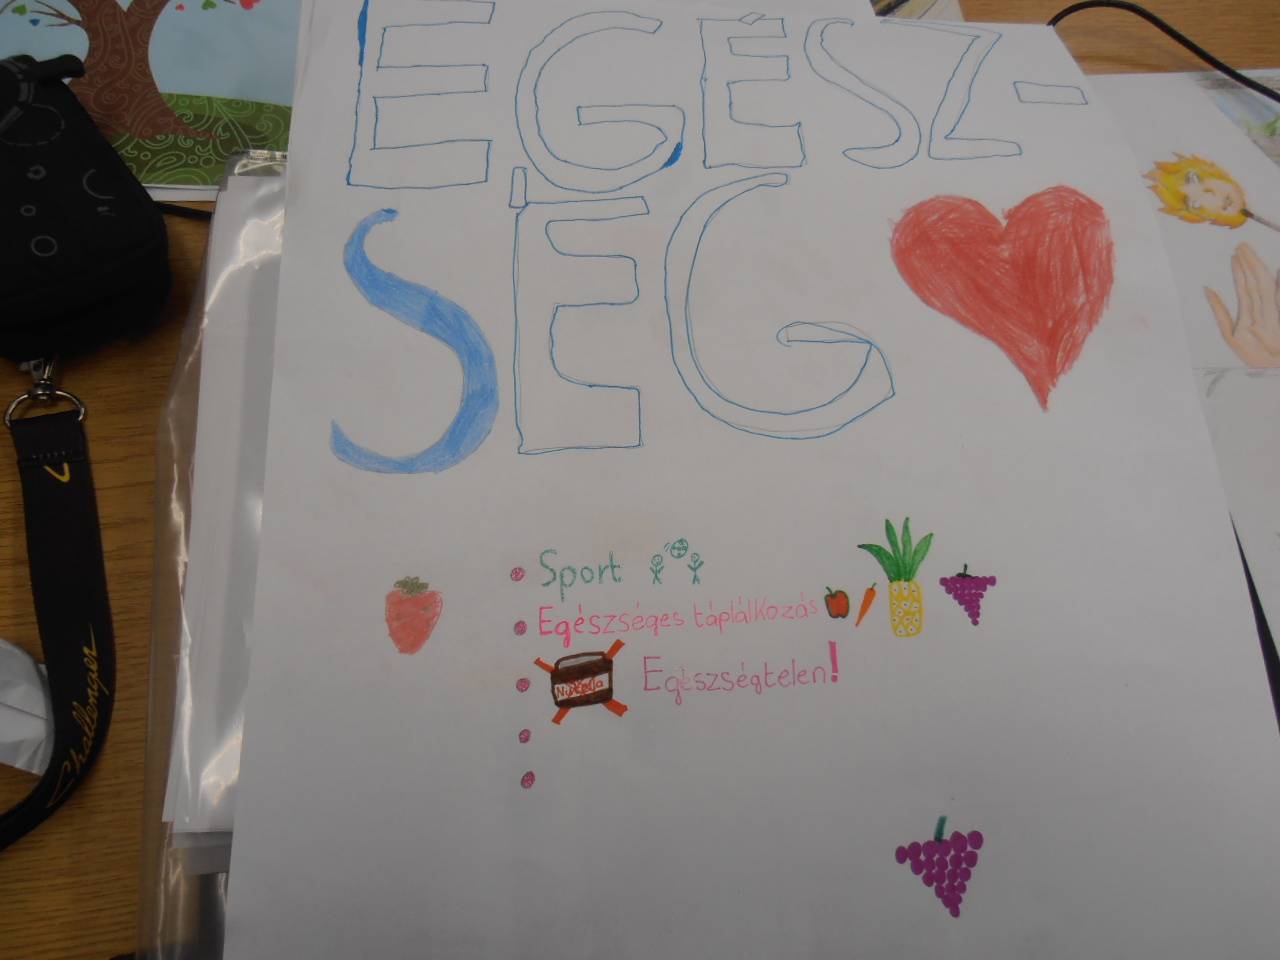 EGÉSZ-
SÉG
Sport
Egészséges táplálkozás
Nutella
Egészségtelen!
Challenger